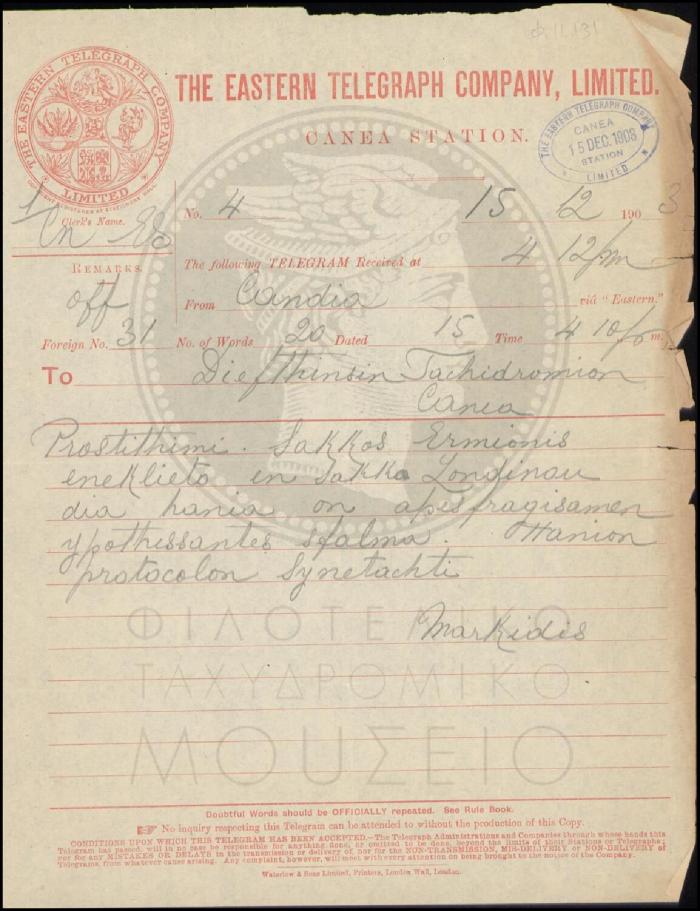 THE EASTERN TELEGRAPH COMPANY
LIMITED
THE EASTERN TELEGRAPH COMPANY, LIMITED.
CANEA STATION.
THE EASTERN TELEGRAPH COMPANY
CANEA
15 DEC. 1903
STATION
LIMITED
No. 4 15 12 1903
Clerk's Name.
REMARKS.
off
The following TELEGRAM Received at 4 12 pm
From Candia viâ "Eastern."
Foreign No. 31 No. of Words 20 Dated 15 Time 4 10 p m.
To Diefthinsin Tachidromion
Canea
Prostithimi. Sakkos Ermionis
eneklieto en Sakko Londinou
dia hania on apesfragisamen
ypothessantes sfalma. Hanion
protocolon Synetachti
Markidis
ΦΙΛΟΤΕΛΙΚΟ
ΤΑΧΥΔΡΟΜΙΚΟ
ΜΟΥΣΕΙΟ
Doubtful Words should be OFFICIALLY repeated. See Rule Book.
No inquiry respecting this Telegram can be attended to without the production of this Copy.
CONDITIONS UPON WHICH THIS TELEGRAM HAS BEEN ACCEPTED.—The Telegraph Administrations and Companies through whose hands this
Telegram has passed, will in no case be responsible for anything done, or omitted to be done, beyond the limits of their Stations or Telegraphs;
nor for any MISTAKES OR DELAYS in the transmission or delivery of, nor for the NON-TRANSMISSION, MIS-DELIVERY, or NON-DELIVERY of
Telegrams, from whatever cause arising. Any complaint, however, will meet with every attention on being brought to the notice of the Company.
Waterlow & Sons Limited, Printers, London Wall, London.